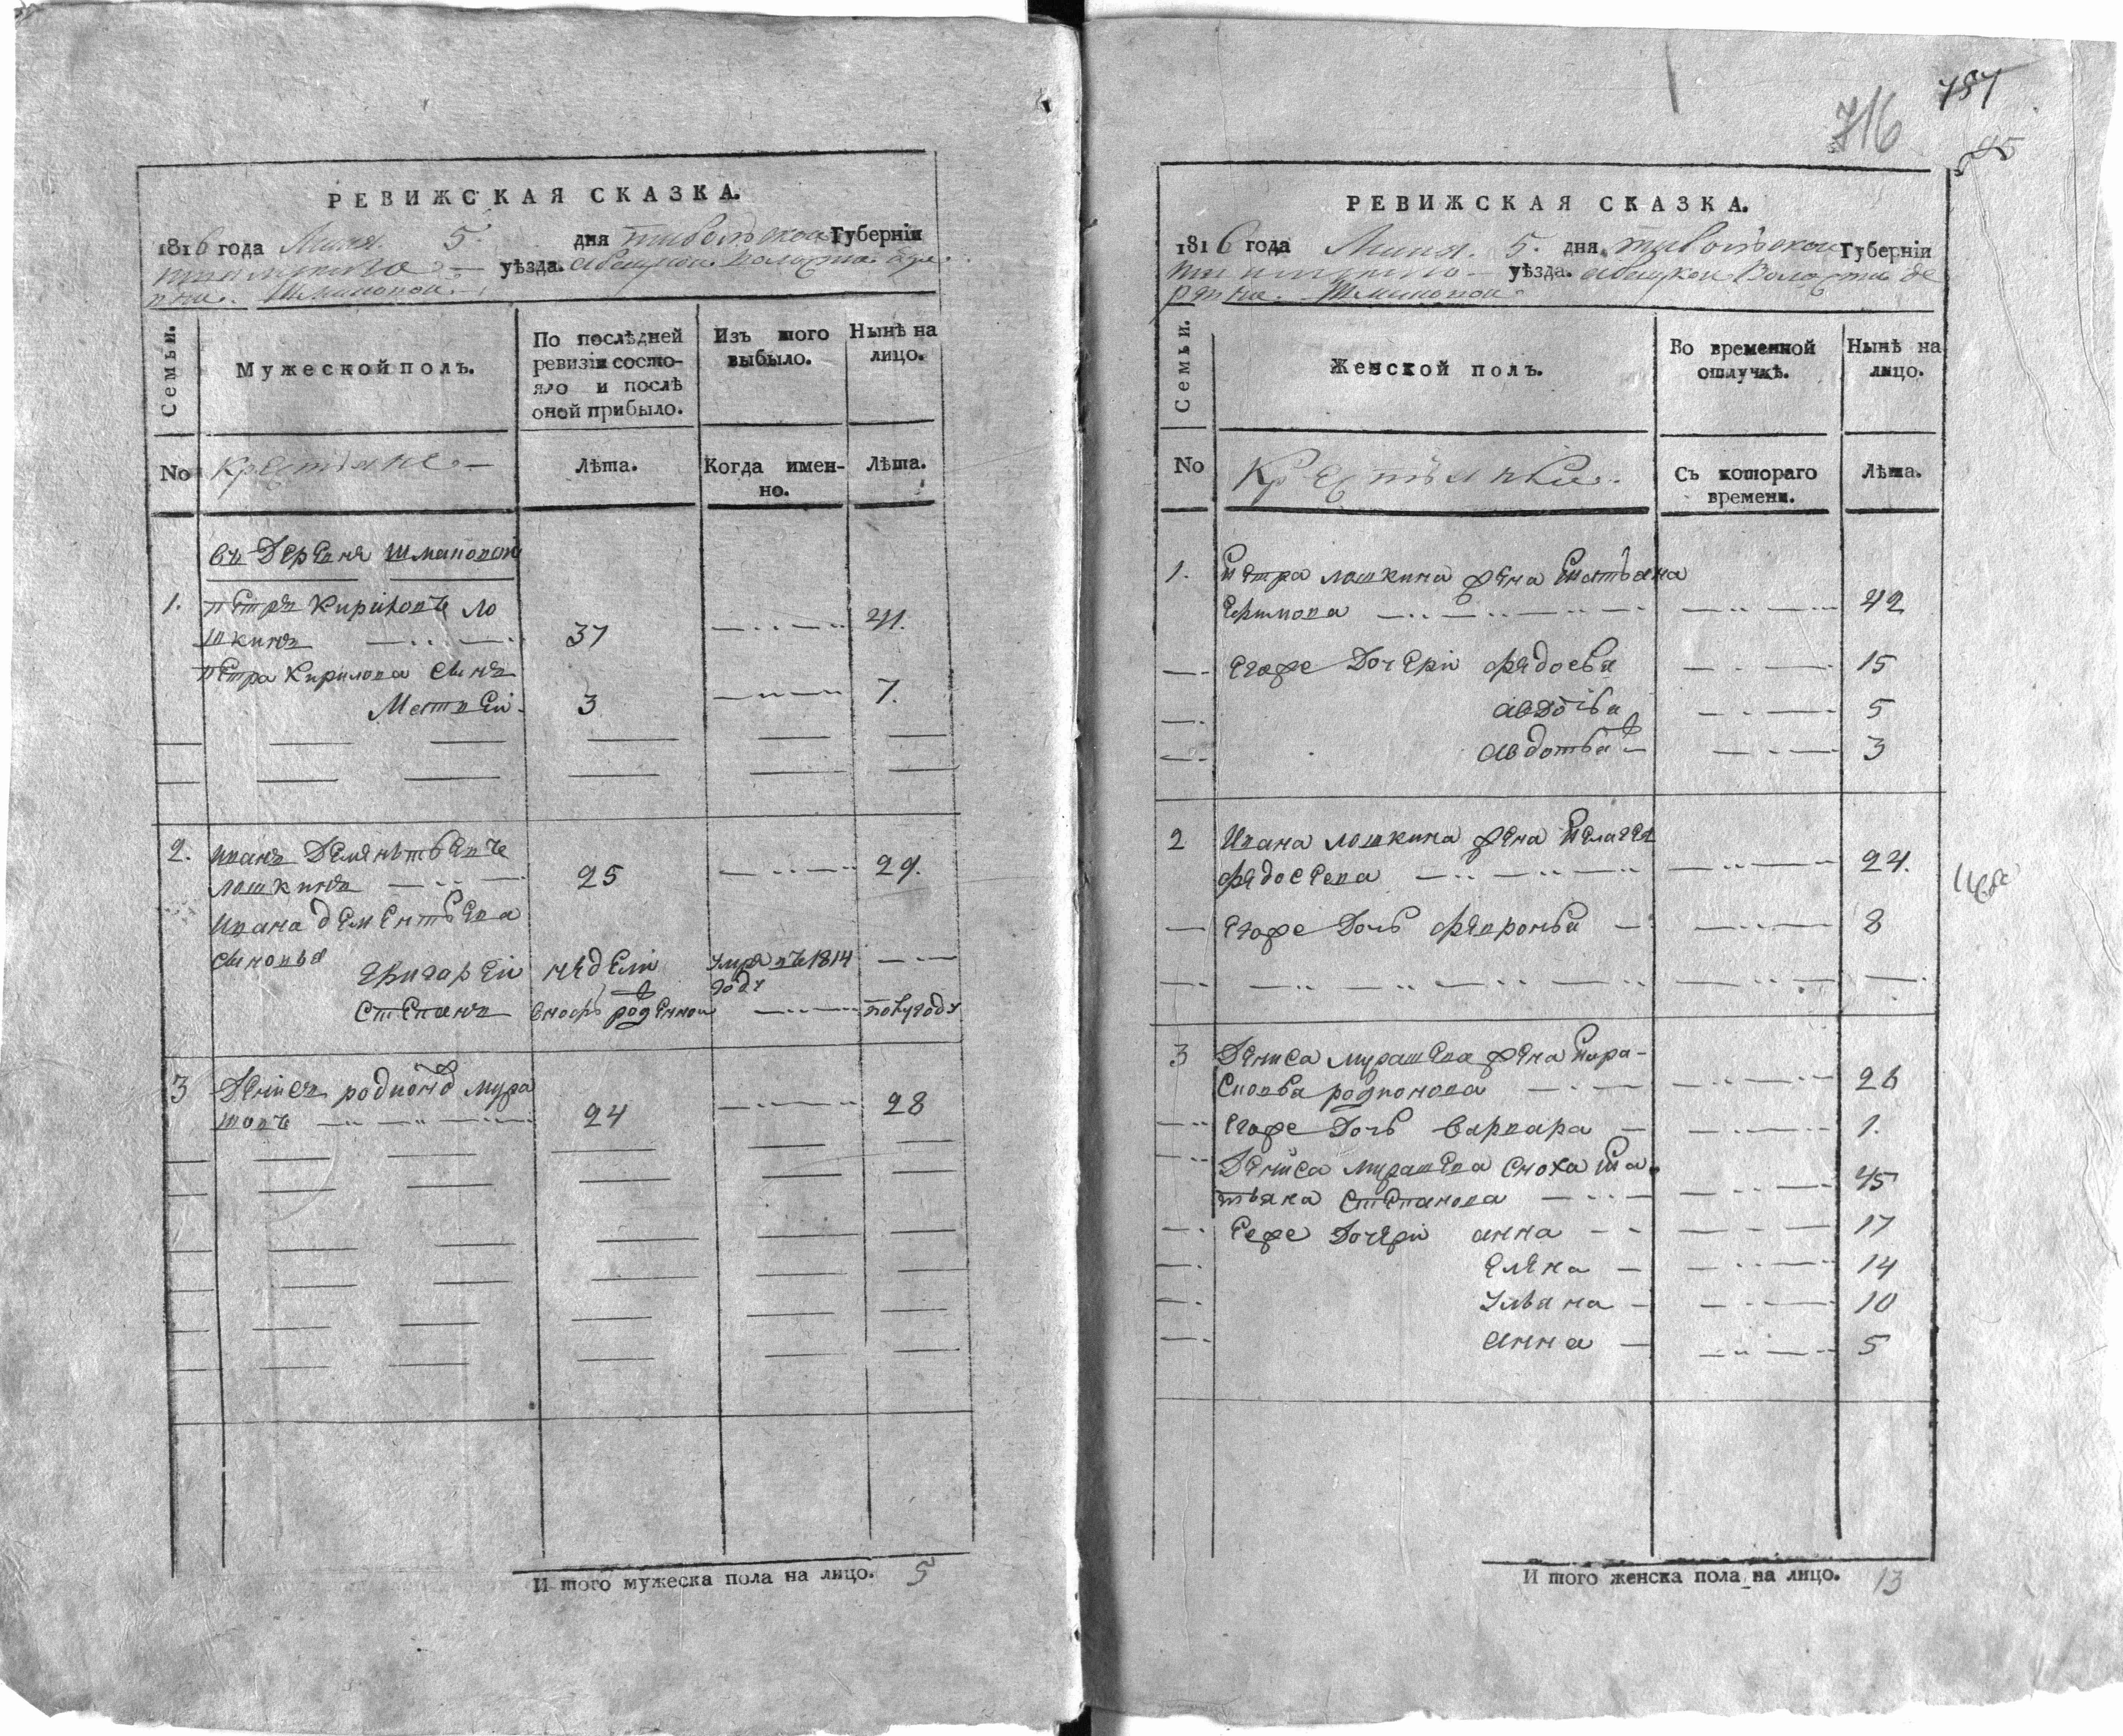 РЕВИЖСКАЯ СКАЗКА.
1816 года Маия. 5. дня тобольской Губерніи
уѣзда. абацкой волости дере
вни. Шмаковой
Семьи.
Мужеской полъ.
По послѣдней ревизіи состо-
яло и послѣ оной прибыло.
Изъ того выбыло.
Нынѣ на лицо.
No
крестьяне
Лѣта.
Когда имен-
но.
Лѣта.
въ Деревня шмаковой
1. Петръ Кириловъ ло
шкинъ 37 41.
Петра Кирилова сынъ
Матвей 3 7.
2. иванъ Деменьтьевъ
лошкинъ 25 29.
ивана дементьева
сыновья Григорей недели умре въ 1814
году
Степанъ вновь рожденной полугоду
3 Денисъ родионов мура
шовъ 24 28
И того мужеска пола на лицо. 5
716
787
РЕВИЖСКАЯ СКАЗКА.
1816 года Маия. 5. дня. тобольской Губерніи
уѣзда. абацкой Волости де
ревни. Шмаковой
Семьи.
Женской полъ.
Во временной отлучкѣ.
Нынѣ на лицо.
No
Крестьянки.
Съ котораго времени.
Лѣта.
1. Петра лошкина жена Татьяна
Ефимова 42
Егоже Дочери федосья 15
5
авдотья 3
2 Ивана лошкина жена Пелагея
федосеева 24.
Егоже Дочь февронья 8
3 Дениса мурашева жена Пара-
сковья родионова 26
Егоже Дочь варвара 1.
Дениса мурашева сноха Та
тьяна Степанова 45
Ееже Дочери анна 17
Елена 14
Ульяна 10
анна 5
И того женска пола на лицо. 13